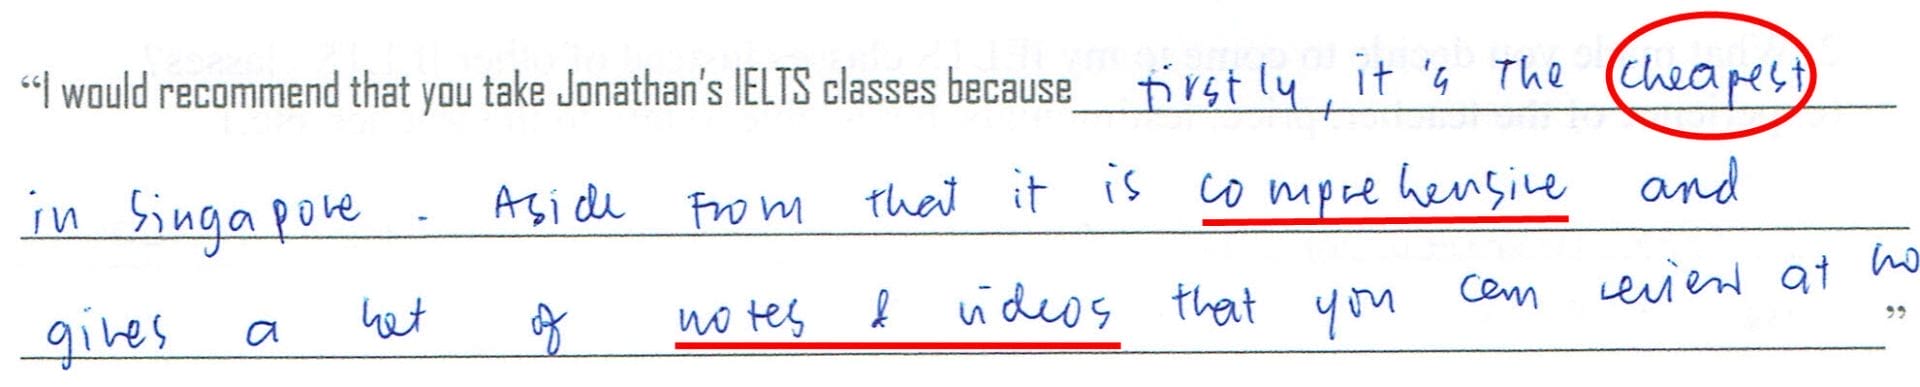 “I would recommend that you take Jonathan's IELTS classes because firstly, it's the cheapest
in Singapore. Aside from that it is comprehensive and
gives a lot of notes & videos that you can review at no ”